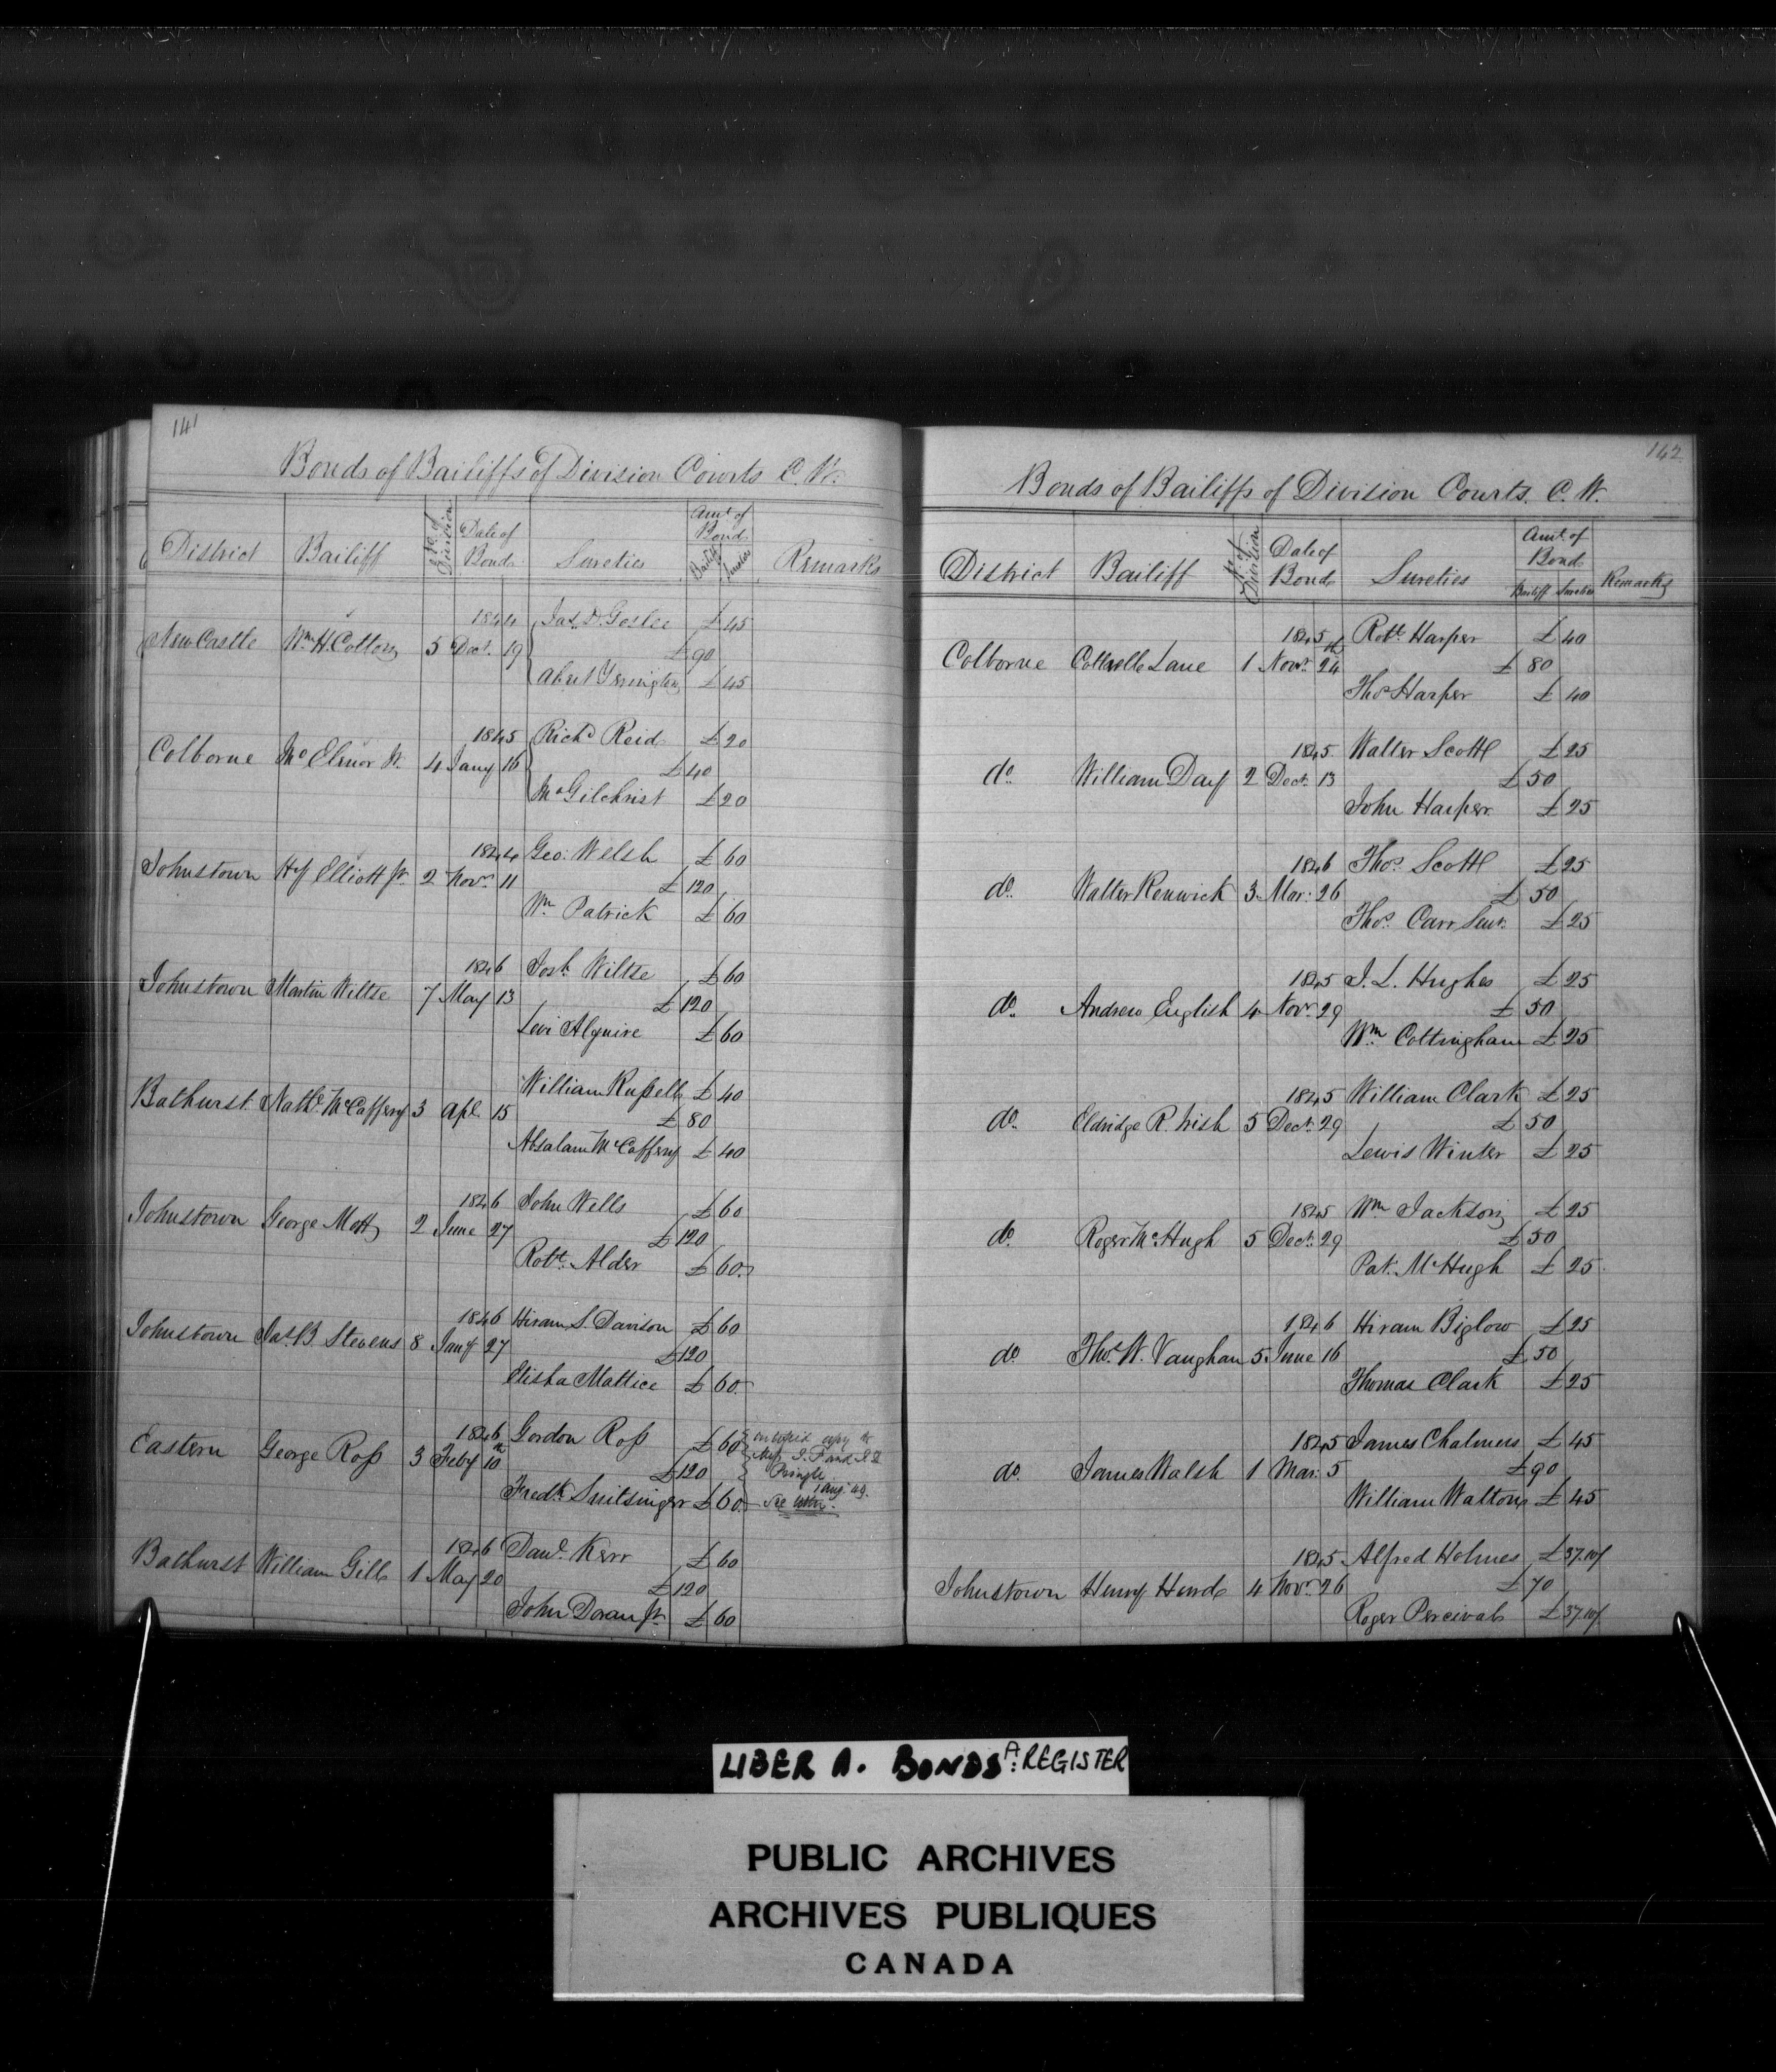 141
Bonds of Bailiffs of Division Courts C. W.
District Bailiff No. of Division Date of Bond Sureties Amt. of Bond Bailiff Sureties Remarks
1844 Jas. D. Goslee £45
New Castle Wm. H. Cotton 5 Dect. 19 £90
Abret £45
1845 Richd Reid £20
Colborne Jno Elmor Jr. 4 Jany 16 £40
Jno Gilchrist £20
1844 Geo: Welsh £60
Johnstown Hy Elliott Jr. 2 Novr. 11 £120
Wm Patrick £60
1846 Josh. Wiltse £60
Johnstown Martin Wiltse 7 May 13 £120
Levi Alguire £60
William Russell £40
Bathurst Nathl. McCaffery 3 Apl. 15 £80
Absalam McCaffery £40
1846 John Wells £60
Johnstown George Mott 2 June 27 £120
Robt. Alder £60
1846 Hiram S. Davison £60
Johnstown Jas. B. Stevens 8 Jany 27 £120
Elisha Mattice £60
1846 Gordon Ross £60
Eastern George Ross 3 Feby 10th £120
Fredk. Snitsinger £60
copy to
Pringle
Aug. 49.
See
1846 Danl. Kerr £60
Bathurst William Gill 1 May 20 £120
John Doran Jr. £60
142
Bonds of Bailiffs of Division Courts. C. W.
District Bailiff No. of Division Date of Bond Sureties Amt. of Bond Bailiff Sureties Remarks
1845 Robt. Harper £40
Colborne Cottrelle Lane 1 Novr. 24th £80
Thos Harper £40
1845. Walter Scott £25
do. William Day 2 Dect. 13 £50
John Harper £25
1846 Thos. Scott £25
do. Walter Renwick 3 Mar: 26 £50
Thos. Carr Senr. £25
1845 J. L. Hughes £25
do. Andrew English 4 Novr. 29 £50
Wm Cottingham £25
1845 William Clark £25
do. Eldridge R. Irish 5 Dect. 29 £50
Lewis Winter £25
1845 Wm Jackson £25
do. Roger McHugh 5 Dect. 29 £50
Pat. McHugh £25
1846 Hiram Biglow £25
do. Thos. W. Vaughan 5 June 16 £50
Thomas Clark £25
1845 James Chalmers £45
do. James Walsh 1 Mar: 5 £90
William Walton £45
1845 Alfred Holmes £37.10/
Johnstown Henry Hurd 4 Novr. 26 £70
Roger Percival £37.10/
LIBER A. BONDS A. REGISTER
PUBLIC ARCHIVES
ARCHIVES PUBLIQUES
CANADA